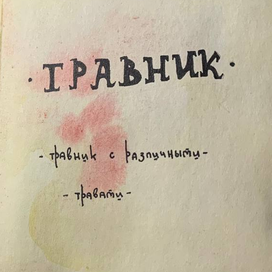 · ТРАВНИК ·
- травник с различными -
- травами -